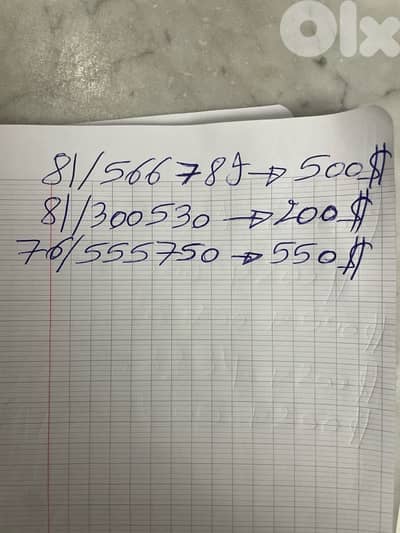 OLX
81/566789→500$
81/300530→200$
76/555750→550$